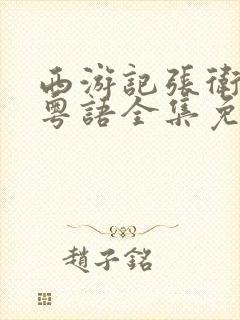 西游記張衛
粵語全集免
趙子銘